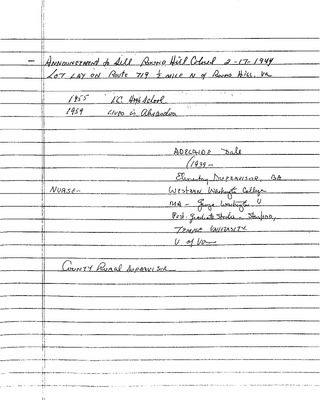 - Announcement to Sell Round Hill Colored 2-17-1944
Lot lay on Route 719 ½ mile N of Round Hill, Va
1955 L.C. High School
1959 Lives in Alexandria
Adelaide Dale
(1939-
Elementary Supervisor, BA
Nurse- Western Washington College
MA - George Washington U
Post-graduate Studies - Stanford,
Temple University
U of Va
County Rural Supervisor